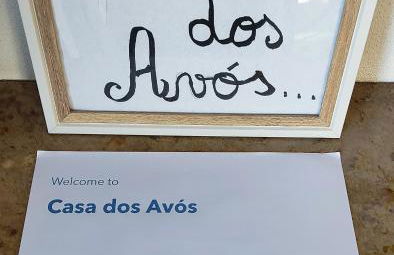 dos
Avós...
Welcome to
Casa dos Avós